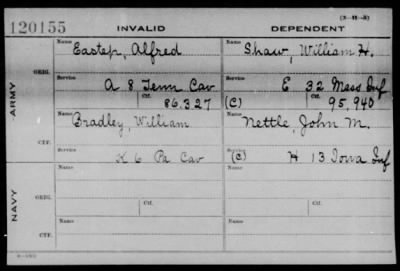 (3-H-5)
120155 INVALID DEPENDENT
Name Name
Eastep, Alfred Shaw, William H.
ORIG.
Service Service
A 8 Tenn Cav E 32 Mass Inf
Ctf. Ctf.
86.327 (C) 95,940
ARMY
Name Name
Bradley, William Nettle, John M.
CTF.
Service Service
K 6 Pa Cav (C) H 13 Iowa Inf
Name Ctf. Name Ctf.
ORIG.
Service Service
NAVY
Name Name
CTF.
Service Service